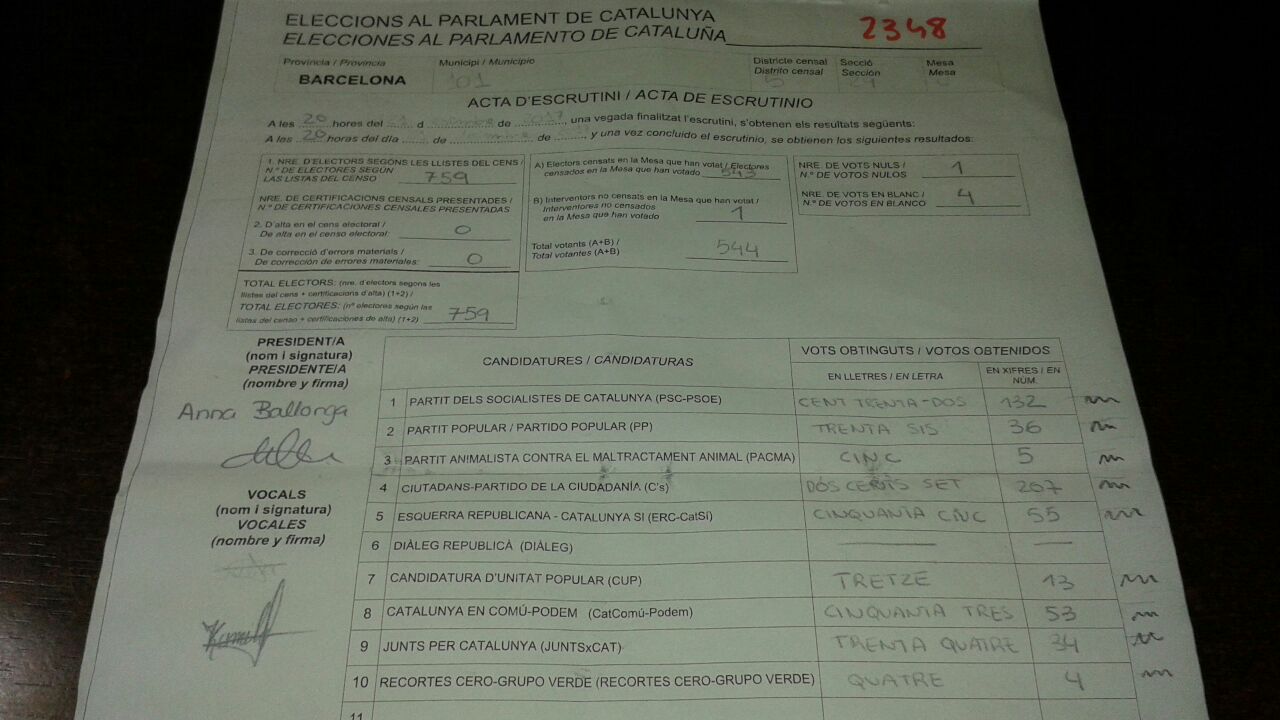 ELECCIONS AL PARLAMENT DE CATALUNYA
ELECCIONES AL PARLAMENTO DE CATALUÑA
2348
Província / Provincia Municipi / Municipio Districte censal Secció Mesa
Distrito censal Sección Mesa
BARCELONA 101 5
ACTA D'ESCRUTINI / ACTA DE ESCRUTINIO
A les 20 hores del d de , una vegada finalitzat l'escrutini, s'obtenen els resultats següents:
A las 20 horas del día de de , y una vez concluido el escrutinio, se obtienen los siguientes resultados:
1. NRE. D'ELECTORS SEGONS LES LLISTES DEL CENS /
N.º DE ELECTORES SEGÚN
LAS LISTAS DEL CENSO 759
NRE. DE CERTIFICACIONS CENSALS PRESENTADES /
N.º DE CERTIFICACIONES CENSALES PRESENTADAS
2. D'alta en el cens electoral /
De alta en el censo electoral: 0
3. De correcció d'errors materials /
De corrección de errores materiales: 0
TOTAL ELECTORS: (nre. d'electors segons les
llistes del cens + certificacions d'alta) (1+2) /
TOTAL ELECTORES: (nº electores según las
listas del censo + certificaciones de alta) (1+2) 759
A) Electors censats en la Mesa que han votat / Electores
censados en la Mesa que han votado 543
B) Interventors no censats en la Mesa que han votat /
Interventores no censados
en la Mesa que han votado 1
Total votants (A+B) /
Total votantes (A+B) 544
NRE. DE VOTS NULS /
N.º DE VOTOS NULOS 1
NRE. DE VOTS EN BLANC /
N.º DE VOTOS EN BLANCO 4
PRESIDENT/A
(nom i signatura)
PRESIDENTE/A
(nombre y firma)
Anna Ballonga
VOCALS
(nom i signatura)
VOCALES
(nombre y firma)
CANDIDATURES / CANDIDATURAS VOTS OBTINGUTS / VOTOS OBTENIDOS
EN LLETRES / EN LETRA EN XIFRES / EN
NUM.
1 PARTIT DELS SOCIALISTES DE CATALUNYA (PSC-PSOE) CENT TRENTA-DOS 132
2 PARTIT POPULAR / PARTIDO POPULAR (PP) TRENTA SIS 36
3 PARTIT ANIMALISTA CONTRA EL MALTRACTAMENT ANIMAL (PACMA) CINC 5
4 CIUTADANS-PARTIDO DE LA CIUDADANÍA (C's) DOS CENTS SET 207
5 ESQUERRA REPUBLICANA - CATALUNYA SI (ERC-CatSí) CINQUANTA CINC 55
6 DIÀLEG REPUBLICÀ (DIÀLEG)
7 CANDIDATURA D'UNITAT POPULAR (CUP) TRETZE 13
8 CATALUNYA EN COMÚ-PODEM (CatComú-Podem) CINQUANTA TRES 53
9 JUNTS PER CATALUNYA (JUNTSxCAT) TRENTA QUATRE 34
10 RECORTES CERO-GRUPO VERDE (RECORTES CERO-GRUPO VERDE) QUATRE 4
11